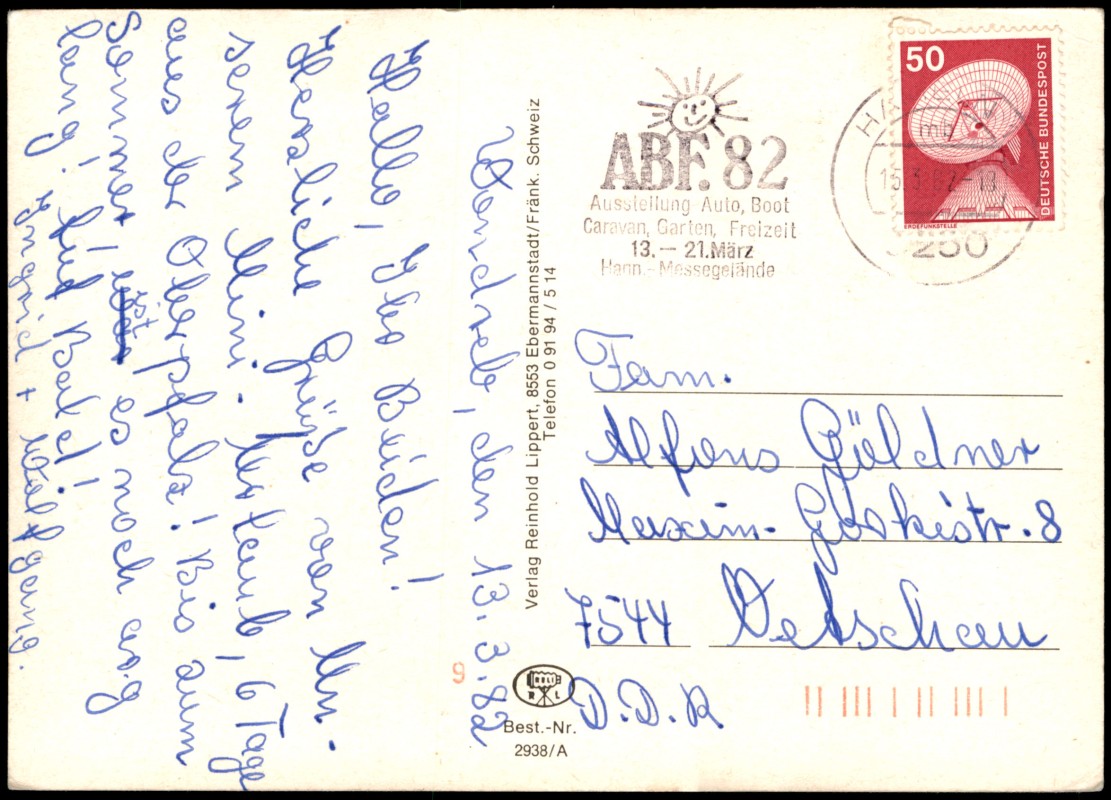 Wondreb, den 13.3.82
Hallo, Ihr Beiden!
Herzliche Grüße von un-
serem Mini-Urlaub, 6 Tage
aus der Oberpfalz! Bis zum
Sommer ist es noch arg
lang! Auf Bald!
Ingrid + Wolfgang.
Verlag Reinhold Lippert, 8553 Ebermannstadt/Fränk. Schweiz
Telefon 0 91 94 / 5 14
ABF. 82
Ausstellung Auto, Boot
Caravan, Garten, Freizeit
13. – 21. März
Hann.-Messegelände
50
DEUTSCHE BUNDESPOST
ERDEFUNKSTELLE
Fam.
Alfons Göldner
Maxim-Gorkistr. 8
7544 Vetschau
D.D.R
9
ROLI
R L
Best.-Nr.
2938/A